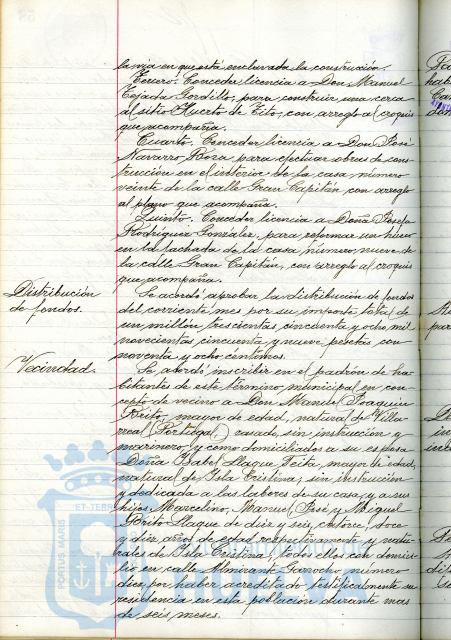 la via en que está enclavada la construccion.
Tercero. Conceder licencia a Don Manuel
Tejada Gordillo, para construir una cerca
al sitio Huerto de Tito, con arreglo al croquis
que acompaña.
Cuarto. Conceder licencia a Don José
Navarro Roza para efectuar obras de cons-
trucción en el interior de la casa número
veinte de la calle Gran Capitán con arreglo
al plano que acompaña.
Quinto. Conceder licencia a Doña Josefa
Rodríguez González, para reformar un hueco
en la fachada de la casa número nueve de
la calle Gran Capitán, con arreglo al croquis
que acompaña.
Distribución
de fondos.
Se acordó aprobar la distribución de fondos
del corriente mes por su importe total de
un millón trescientas cincuenta y ocho mil
novecientas cincuenta y nueve pesetas con
noventa y ocho centimos.
Vecindad.
Se acordó inscribir en el padrón de ha-
bitantes de este término municipal en con-
cepto de vecino a Don Manuel Joaquin
Brito, mayor de edad, natural de Villa-
rreal (Portugal), casado, sin instrucción y
marinero, y como domiciliados a su esposa
Doña Isabel Llaque Feita, mayor de edad,
natural de Isla Cristina, sin instrucción
y dedicada a las labores de su casa, y a sus
hijos, Marcelino, Manuel, José y Miguel
Brito Llaque de diez y seis, catorce, doce
y diez años de edad respectivamente y natu-
rales de Isla Cristina, todos ellos con domici-
lio en calle Almirante Garrocho número
diez por haber acreditado testificalmente su
residencia en esta población durante mas
de seis meses.
PORTUS MARIS
ET TERRÆ